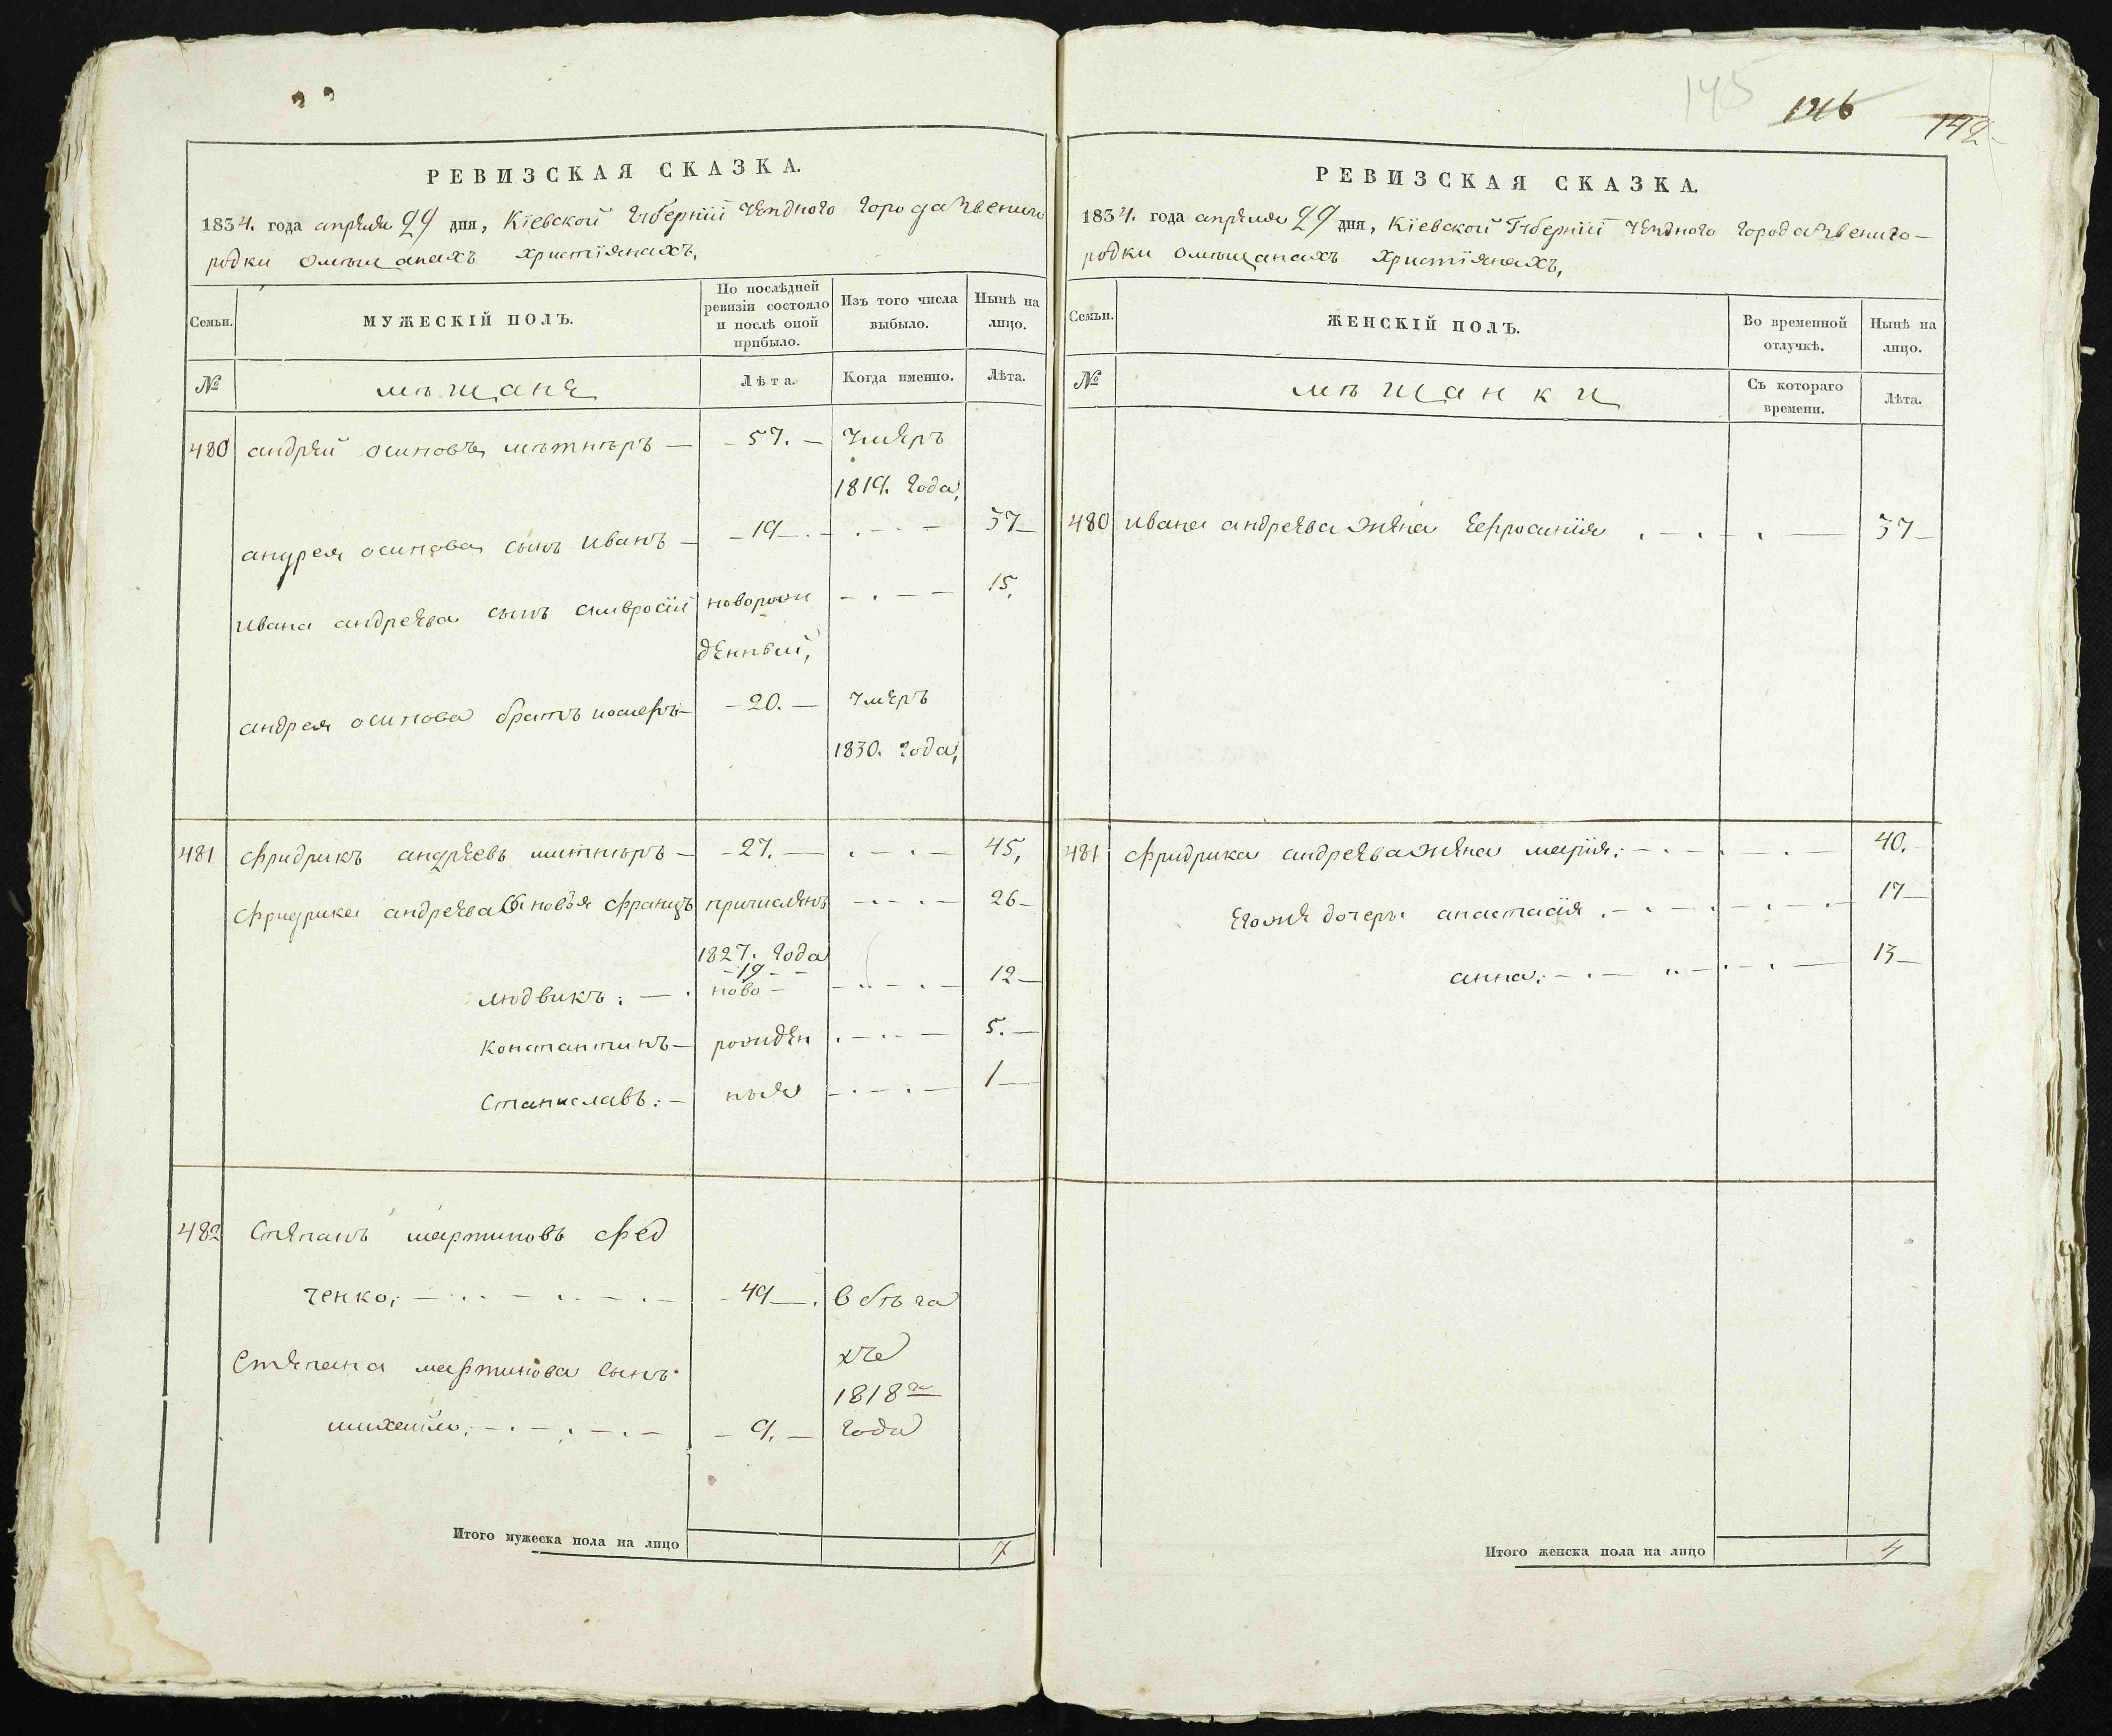 145
146
142
РЕВИЗСКАЯ СКАЗКА.
1834. года апреля 29 дня, Кіевской Губерніи уезднаго города Звениго
родки омѣщанахъ христіянахъ,
Семьи.
МУЖЕСКІЙ ПОЛЪ.
По послѣдней ревизіи состояло и послѣ оной прибыло.
Изъ того числа выбыло.
Нынѣ на лицо.
№
мѣщане
Лѣта.
Когда именно.
Лѣта.
480 андрей осиповъ митнеръ — 57. — умеръ
1819. года,
андрея осипова сынъ иванъ — 19 — 37
ивана андреева сынъ амвросій новорож 15,
денный,
андрея осипова братъ — 20. — умеръ
1830. года,
481 фридрикъ андреевъ митнеръ — 27. — 45,
фридрика андреева сыновья францъ причисленъ 26
1827. года
19
людвикъ: ново 12
константинъ — рожден 5.
станиславъ: ныя 1
482 степанъ мартиновъ фед
ченко, 49 — в бѣга
хъ
степана мартинова сынъ
1818го
михайло, — 9. — года
Итого мужеска пола на лицо 7
РЕВИЗСКАЯ СКАЗКА.
1834. года апреля 29 дня, Кіевской Губерніи уезднаго города Звениго—
родки омѣщанахъ христіянахъ,
Семьи.
ЖЕНСКІЙ ПОЛЪ.
Во временной отлучкѣ.
Нынѣ на лицо.
№
мѣщанки
Съ котораго времени.
Лѣта.
480 ивана андреева жена Ефросинія 37
481 фридрика андреева жена марія: 40.
Егоже дочери анастасія 17
анна: 13
Итого женска пола на лицо 4